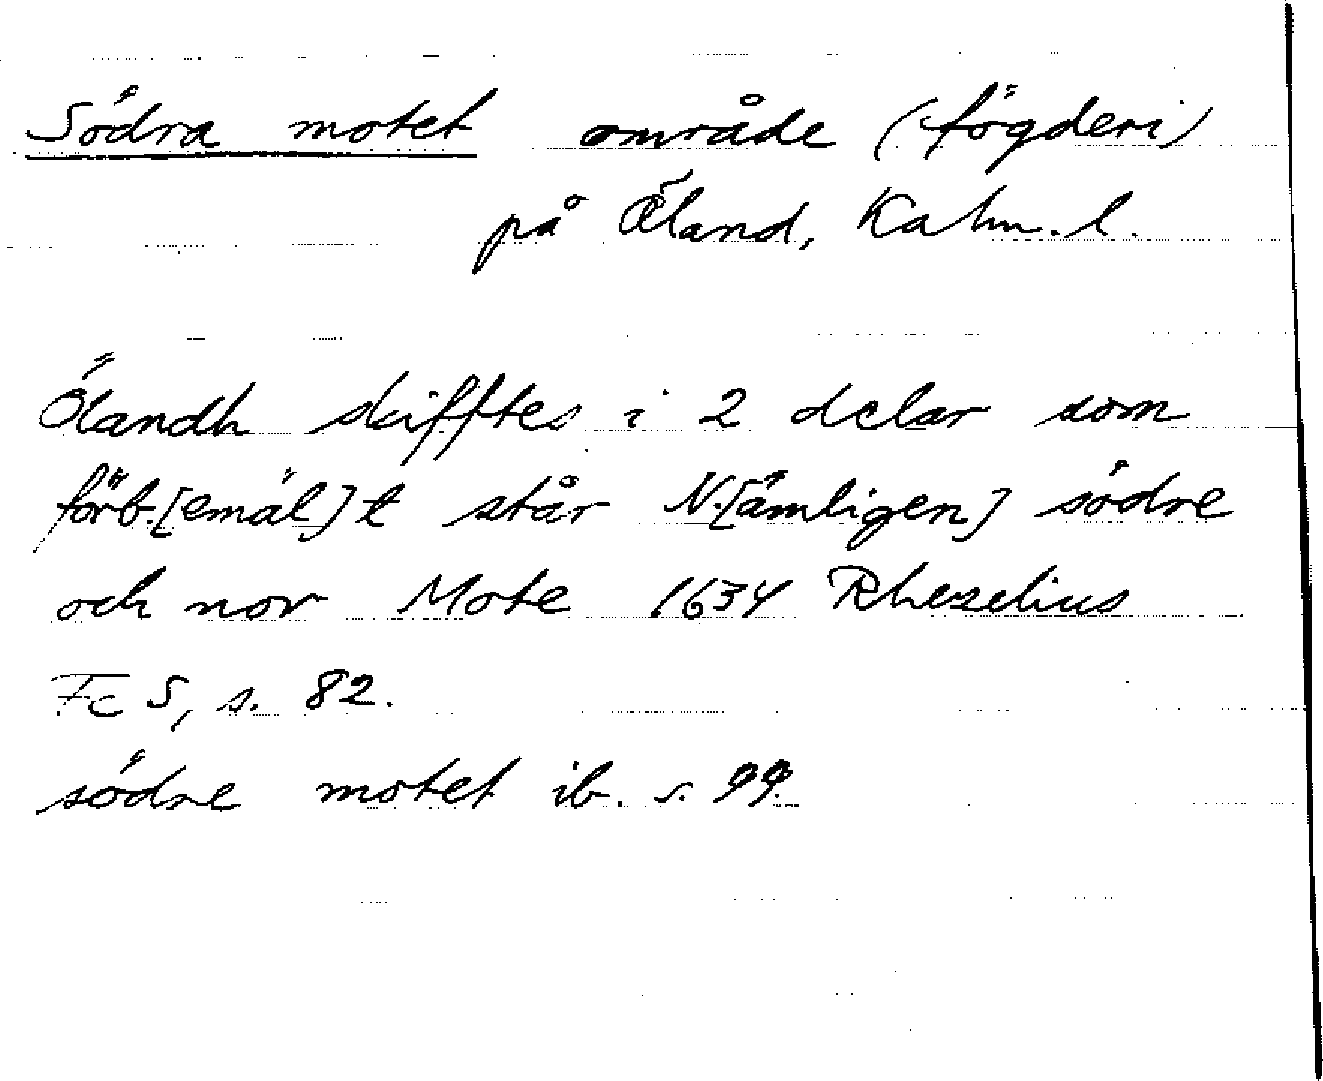 Södra motet område (fögderi)
på Öland, Kalm. l.
Ölandh skifftes i 2 delar som
förb.[emäl]t står N.[ämligen] södre
och nor Mote 1634 Rhezelius
Fc 5, s. 82.
södre motet ib. s. 99.